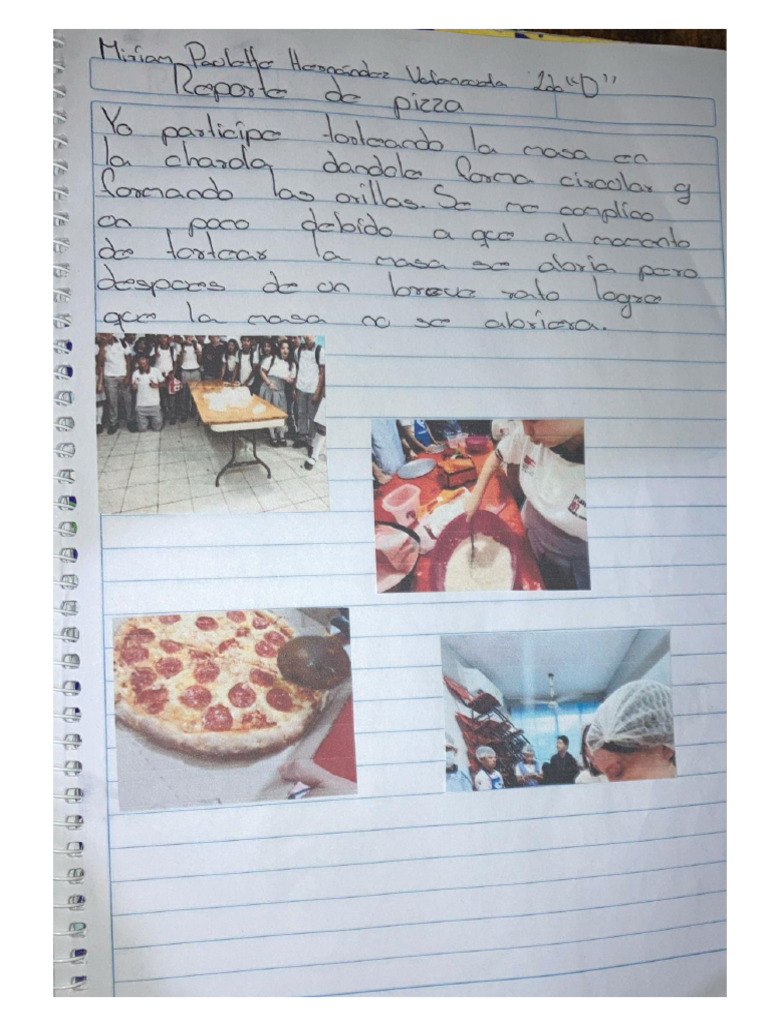 Miriam Paulette Hernández 2do "D"
Reporte de pizza
Yo participe torteando la masa en
la charola, dandole forma circular y
formando las orillas. Se me complico
un poco debido a que al momento
de tortear la masa se abria pero
despues de un breve rato logre
que la masa no se abriera.